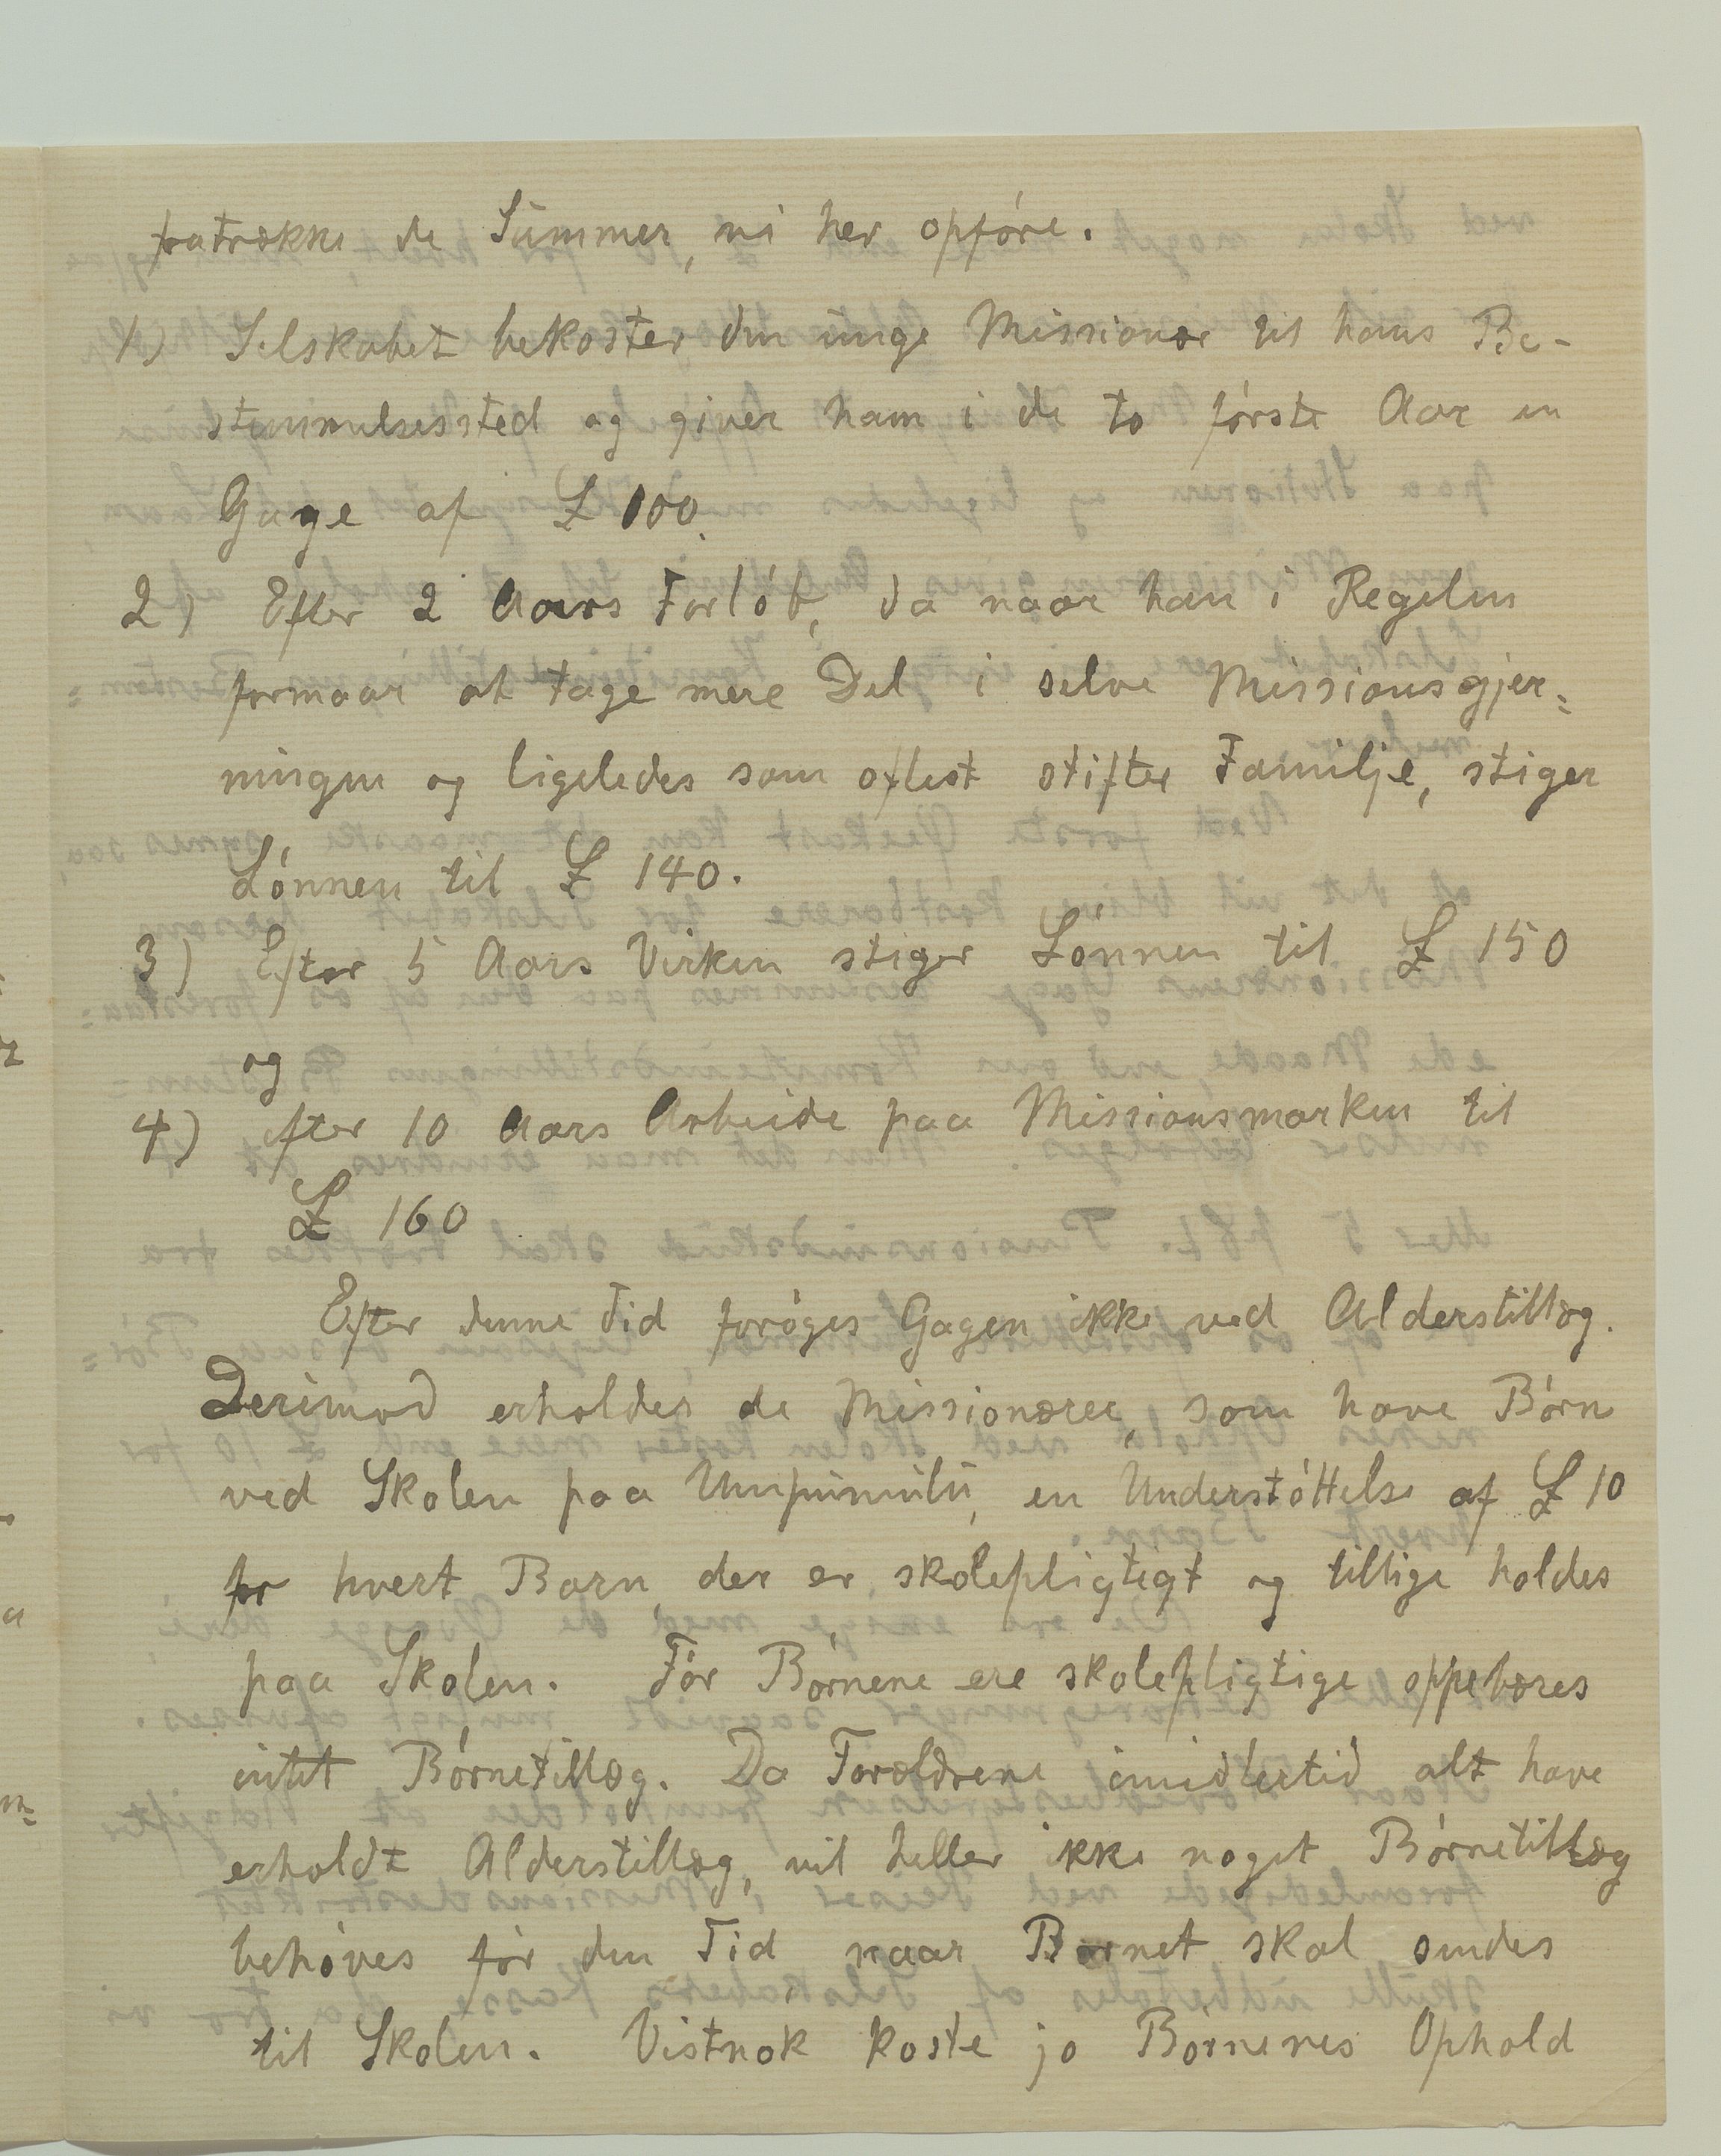 fratrække de Summer, vi her opføre.
1) Selskabet bekoster den unge Missionær til hans Be-
stemmelsessted og giver ham i de to første Aar en
Gage af £ 100.
2) Efter 2 Aars Forløb, da naar han i Regelen
formaar at tage mere Del i selve Missionsgjer=
ningen og ligeledes som oftest stifter Familje, stiger
Lønnen til £ 140.
3) Efter 5 Aars Virken stiger Lønnen til £ 150
og
4) efter 10 Aars Arbeide paa Missionsmarken til
£ 160
Efter denne Tid forøges Gagen ikke ved Alderstillæg.
Derimod erholdes de Missionærer, som have Børn
ved Skolen paa Umpumulu, en Understøttelse af £ 10
for hvert Barn, der er skolepligtigt og tillige holdes
paa Skolen. Før Børnene ere skolepligtige oppebæres
intet Børnetillæg. Da Forældrene imidlertid alt have
erholdt Alderstillæg, vil heller ikke noget Børnetillæg
behøves før den Tid naar Barnet skal sendes
til Skolen. Vistnok koste jo Børnenes Ophold